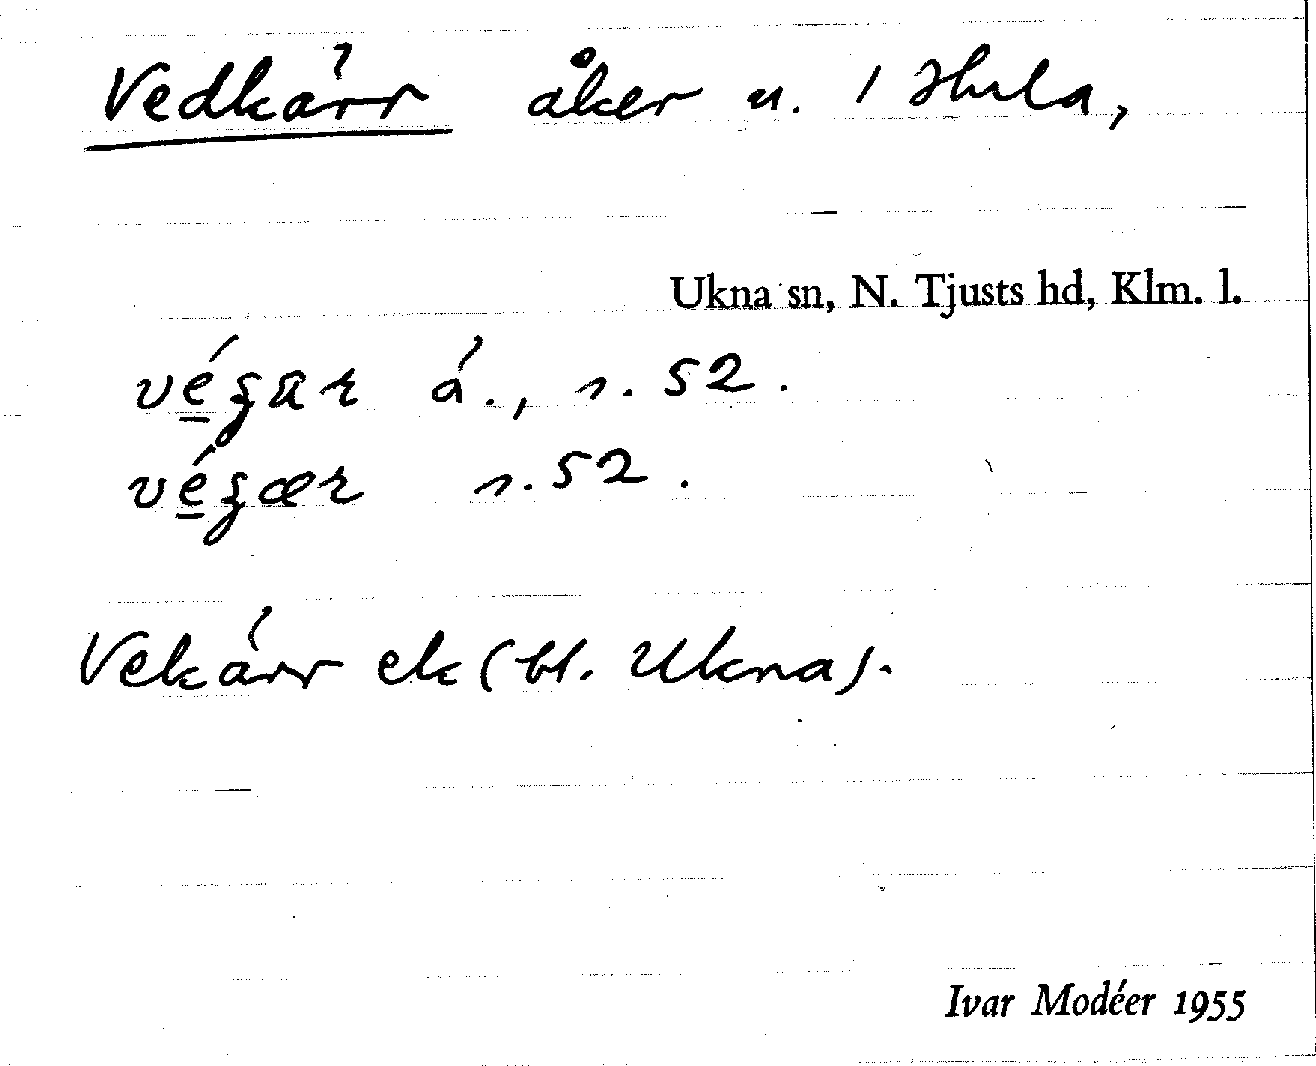 Vedkärr åker u. 1 Hula,
Ukna sn, N. Tjusts hd, Klm. l.
vé̱ʒar á., s. 52.
vé̱ʒær s. 52.
Vekärr ek (bl. Ukna).
Ivar Modéer 1955